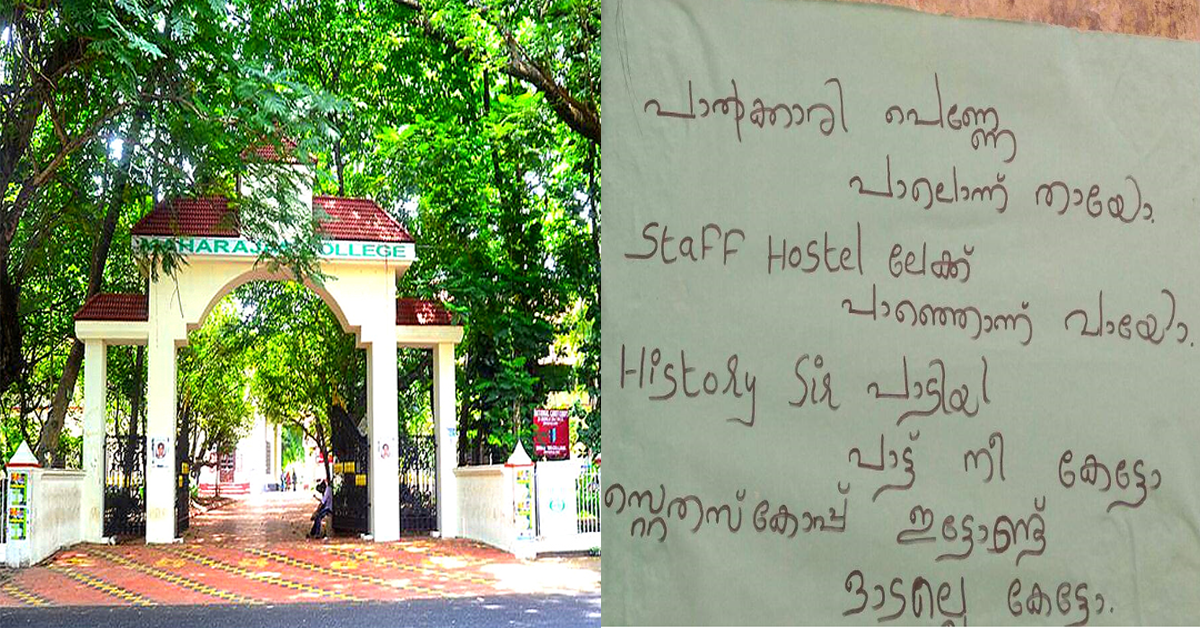 MAHARAJA'S COLLEGE
പാൽക്കാരി പെണ്ണേ
പാലൊന്ന് തായോ.
Staff Hostel ലേക്ക്
പാഞ്ഞൊന്ന് വായോ.
History Sir പാടിയ
പാട്ട് നീ കേട്ടോ
സ്റ്റെതസ്കോപ്പ് ഇട്ടോണ്ട്
ആടല്ലെ കേട്ടോ.